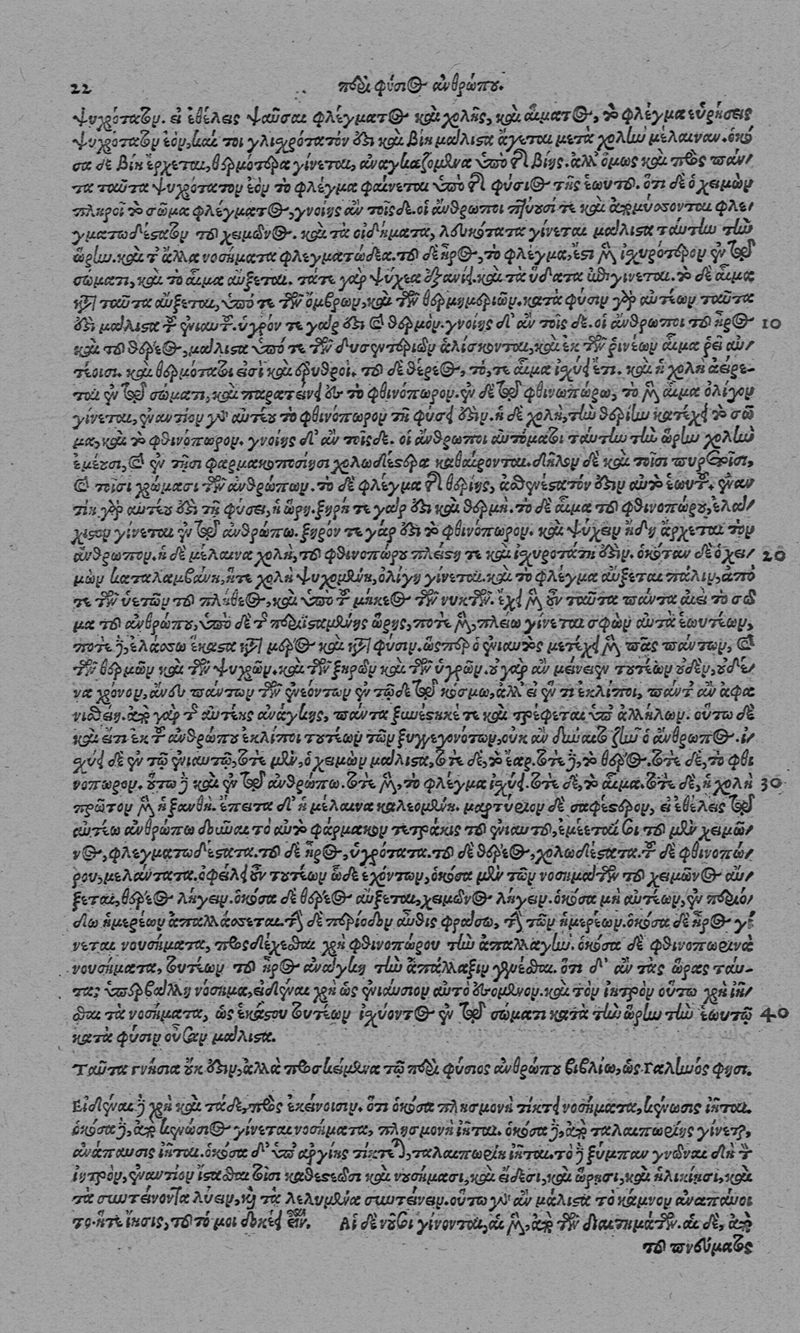 22 περὶ φύσιος ἀνθρώπου.
ψυχρότατον. εἰ ἐθέλεις ψαῦσαι φλέγματος καὶ χολῆς, καὶ αἵματος, τὸ φλέγμα εὑρήσεις
ψυχρότατον ἐόν, καί τοι γλισχρότατόν ἐστι καὶ βίῃ μάλιστα ἄγεται μετὰ χολὴν μέλαιναν. ὁκό
σα δὲ βίῃ ἔρχεται, θερμότερα γίνεται, ἀναγκαζόμενα ὑπὸ τῆς βίης. ἀλλ' ὅμως καὶ πρὸς πάν/
τα ταῦτα ψυχρότατον ἐὸν τὸ φλέγμα φαίνεται ὑπὸ τῆς φύσιος τῆς ἑωυτοῦ. ὅτι δὲ ὁ χειμὼν
πληροῖ τὸ σῶμα φλέγματος, γνοίης ἂν τοῖσδε. οἱ ἄνθρωποι πτύουσί τε καὶ ἀπομύσσονται φλε/
γματωδέστατον τοῦ χειμῶνος. καὶ τὰ οἰδήματα, λευκότατα γίνεται μάλιστα ταύτην τὴν
ὥρην. καὶ τ' ἄλλα νοσήματα φλεγματώδεα. τοῦ δὲ ἦρος, τὸ φλέγμα, ἔτι μὲν ἰσχυρότερον ἐν τῷ
σώματι, καὶ τὸ αἷμα αὔξεται. τά τε γὰρ ψύχεα ἐξανίει. καὶ τὰ ὕδατα ἐπιγίνεται. τὸ δὲ αἷμα
κατὰ ταῦτα αὔξεται, ὑπό τε τῶν ὄμβρων, καὶ τῶν θερμημεριῶν. κατὰ φύσιν γὰρ αὐτέων ταῦτα
ἐστι μάλιστα τοῦ ἐνιαυτοῦ. ὑγρόν τε γάρ ἐστι καὶ θερμόν. γνοίης δ' ἂν τοῖσδε. οἱ ἄνθρωποι τοῦ ἦρος 10
καὶ τοῦ θέρεος, μάλιστα ὑπό τε τῶν δυσεντεριῶν ἁλίσκονται, καὶ ἐκ τῶν ῥινέων αἷμα ῥεῖ αὐ/
τέοισι. καὶ θερμότατοι εἰσὶ καὶ ἐρυθροί. τοῦ δὲ θέρεος, τό, τε αἷμα ἰσχύει ἔτι. καὶ ἡ χολὴ ἀείρε-
ται ἐν τῷ σώματι, καὶ παρατείνει ἐς τὸ φθινόπωρον. ἐν δὲ τῷ φθινωπώρῳ, τὸ μὲν αἷμα ὀλίγον
γίνεται, ἐναντίον γὰρ αὐτέῳ τὸ φθινόπωρον τῇ φύσει ἐστιν. ἡ δὲ χολὴ, τὴν θερίην κατέχει τὸ σῶ
μα, καὶ τὸ φθινόπωρον. γνοίης δ' ἂν τοῖσδε. οἱ ἄνθρωποι αὐτόματοι ταύτην τὴν ὥρην χολὴν
ἐμέουσι, καὶ ἐν τῇσι φαρμακοποσίῃσι χολωδέστερα καθαίρονται. δῆλον δὲ καὶ τοῖσι πυρετοῖσι,
καὶ τοῖσι χρώμασι τῶν ἀνθρώπων. τὸ δὲ φλέγμα τῆς θερίης, ἀσθενέστατόν ἐστιν αὐτὸ ἑωυτοῦ. ἐναν/
τίη γὰρ αὐτέου ἐστὶ τῇ φύσει, ἡ ὥρη. ξηρή τε γάρ ἐστι καὶ θερμή. τὸ δὲ αἷμα τοῦ φθινοπώρου, ἐλά/
χιστον γίνεται ἐν τῷ ἀνθρώπῳ. ξηρόν τε γάρ ἐστι τὸ φθινόπωρον. καὶ ψύχειν ἤδη ἄρχεται τὸν
ἄνθρωπον. ἡ δὲ μέλαινα χολὴ, τοῦ φθινοπώρου πλείστη τε καὶ ἰσχυροτάτη ἐστιν. ὁκόταν δὲ ὁ χει/ 20
μὼν καταλαμβάνῃ, ἥτε χολὴ ψυχομένη, ὀλίγη γίνεται. καὶ τὸ φλέγμα αὔξεται πάλιν, ἀπό
τε τῶν ὑετῶν τοῦ πλήθεος, καὶ ὑπὸ τοῦ μήκεος τῶν νυκτῶν. ἔχει μὲν οὖν ταῦτα πάντα αἰεὶ τὸ σῶ
μα τοῦ ἀνθρώπου, ὑπὸ δὲ τῆς περιϊσταμένης ὥρης, ποτὲ μὲν, πλείω γίνεται σφῶν αὐτῶν ἑωυτέων,
ποτὲ δὲ, ἐλάσσω ἕκαστα κατὰ μέρος καὶ κατὰ φύσιν. ὥσπερ ὁ ἐνιαυτὸς μετέχει μὲν πᾶς πάντων, καὶ
τῶν θερμῶν καὶ τῶν ψυχρῶν. καὶ τῶν ξηρῶν καὶ τῶν ὑγρῶν. οὐ γὰρ ἂν μείνειεν τουτέων οὐδὲν, οὐδέ/
να χρόνον, ἄνευ πάντων τῶν ἐνεόντων ἐν τῷδε τῷ κόσμῳ, ἀλλ' εἰ ἕν τι ἐκλίποι, πάντ' ἂν ἀφα
νισθείη. ἀπὸ γὰρ τῆς αὐτέης ἀνάγκης, πάντα ξυνέστηκέ τε καὶ τρέφεται ὑπ' ἀλλήλων. οὕτω δὲ
καὶ εἴ τι ἐκ τοῦ ἀνθρώπου ἐκλίποι τουτέων τῶν ξυγγεγονότων, οὐκ ἂν δύναιτο ζῆν ὁ ἄνθρωπος. ἰ/
σχύει δὲ ἐν τῷ ἐνιαυτῷ, τοτὲ μὲν, ὁ χειμὼν μάλιστα, τοτὲ δὲ, τὸ ἔαρ. τοτὲ δὲ, τὸ θέρος. τοτὲ δὲ, τὸ φθι
νόπωρον. οὕτω δὲ καὶ ἐν τῷ ἀνθρώπῳ. τοτὲ μὲν, τὸ φλέγμα ἰσχύει. τοτὲ δὲ, τὸ αἷμα. τοτὲ δὲ, ἡ χολὴ 30
πρῶτον μὲν ἡ ξανθή. ἔπειτα δ' ἡ μέλαινα καλεομένη. μαρτύριον δὲ σαφέστερον, εἰ ἐθέλεις τῷ
αὐτέῳ ἀνθρώπῳ δοῦναι τὸ αὐτὸ φάρμακον τετράκις τοῦ ἐνιαυτοῦ, ἐμέεταί σοι τοῦ μὲν χειμῶ/
νος, φλεγματωδέστατα. τοῦ δὲ ἦρος, ὑγρότατα. τοῦ δὲ θέρεος, χολωδέστατα. τοῦ δὲ φθινοπώ/
ρου, μελάντατα. ὀφείλει οὖν τουτέων ὧδε ἐχόντων, ὁκόσα μὲν τῶν νοσημάτων τοῦ χειμῶνος αὔ/
ξεται, θέρεος λήγειν. ὁκόσα δὲ θέρεος αὔξεται, χειμῶνος λήγειν. ὁκόσα μὴ αὐτέων, ἐν περιό/
δῳ ἡμερέων ἀπαλλάσσεται. τὴν δὲ περίοδον αὖθις φράσω, τὴν τῶν ἡμερέων. ὁκόσα δὲ ἦρος γί
νεται νουσήματα, προσδέχεσθαι χρὴ φθινοπώρου τὴν ἀπαλλαγήν. ὁκόσα δὲ φθινοπωρινὰ
νουσήματα, τουτέων τοῦ ἦρος ἀνάγκη τὴν ἀπάλλαξιν γενέσθαι. ὅτι δ' ἂν τὰς ὥρας ταύ-
τας ὑπερβάλλῃ νόσημα, εἰδέναι χρὴ ὡς ἐνιαύσιον αὐτὸ ἐσόμενον. καὶ τὸν ἰητρὸν οὕτω χρὴ ἰῆ/
σθαι τὰ νοσήματα, ὡς ἑκάστου τουτέων ἰσχύοντος ἐν τῷ σώματι κατὰ τὴν ὥρην τὴν ἑωυτῷ 40
κατὰ φύσιν οὖσαν μάλιστα.
Ταῦτα γνήσια οὔκ ἐστιν, ἀλλὰ προσκείμενα τῷ περὶ φύσιος ἀνθρώπου βιβλίῳ, ὡς Γαληνός φησι.
Εἰδέναι δὲ χρὴ καὶ τάδε, πρὸς ἐκείνοισιν. ὅτι ὁκόσα πλησμονὴ τίκτει νοσήματα, κένωσις ἰῆται.
ὁκόσα δὲ, ἀπὸ κενώσιος γίνεται νοσήματα, πλησμονὴ ἰῆται. ὁκόσα δὲ, ἀπὸ ταλαιπωρίης γίνεται,
ἀνάπαυσις ἰῆται. ὁκόσα δ' ὑπ' ἀργίης τίκτεται, ταλαιπωρίη ἰῆται. τὸ δὲ ξύμπαν γνῶναι δεῖ τὸν
ἰητρὸν, ἐναντίον ἵστασθαι τοῖσι καθεστεῶσι καὶ νουσήμασι, καὶ εἴδεσι, καὶ ὥρῃσι, καὶ ἡλικίῃσι, καὶ
τὰ συντείνοντα λύειν, καὶ τὰ λελυμένα συντείνειν. οὕτω γὰρ ἂν μάλιστα τὸ κάμνον ἀναπαύοι
το. ἥτε ἴησις, τοῦτό μοι δοκέει εἶναι. Αἱ δὲ νοῦσοι γίνονται, αἱ μὲν, ἀπὸ τῶν διαιτημάτων. αἱ δὲ, ἀπὸ
τοῦ πνεύματος